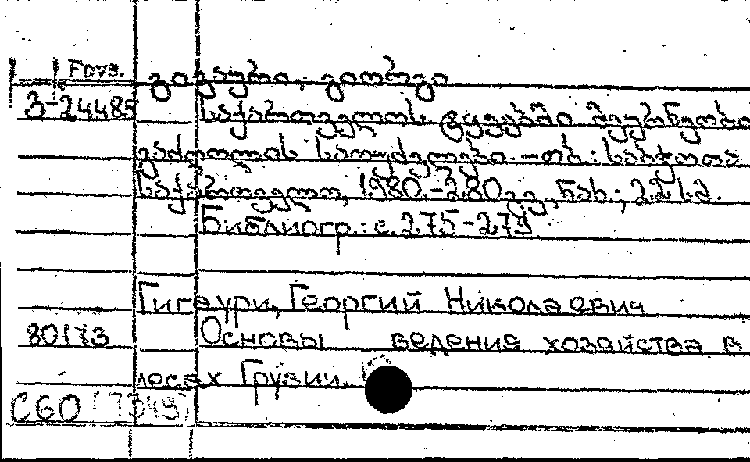 გიგაური, გიორგი
3-24485 საქართველოს ტყეებში მეურნეობის
გაძღოლის საფუძვლები. -თბ.: საბჭოთა
საქართველო, 1980.-280 გვ., ნახ.; 22 სმ.
Библиогр.: с. 275-279
Гигаури, Георгий Николаевич
80173 Основы ведения хозяйства в
лесах Грузии.
С60